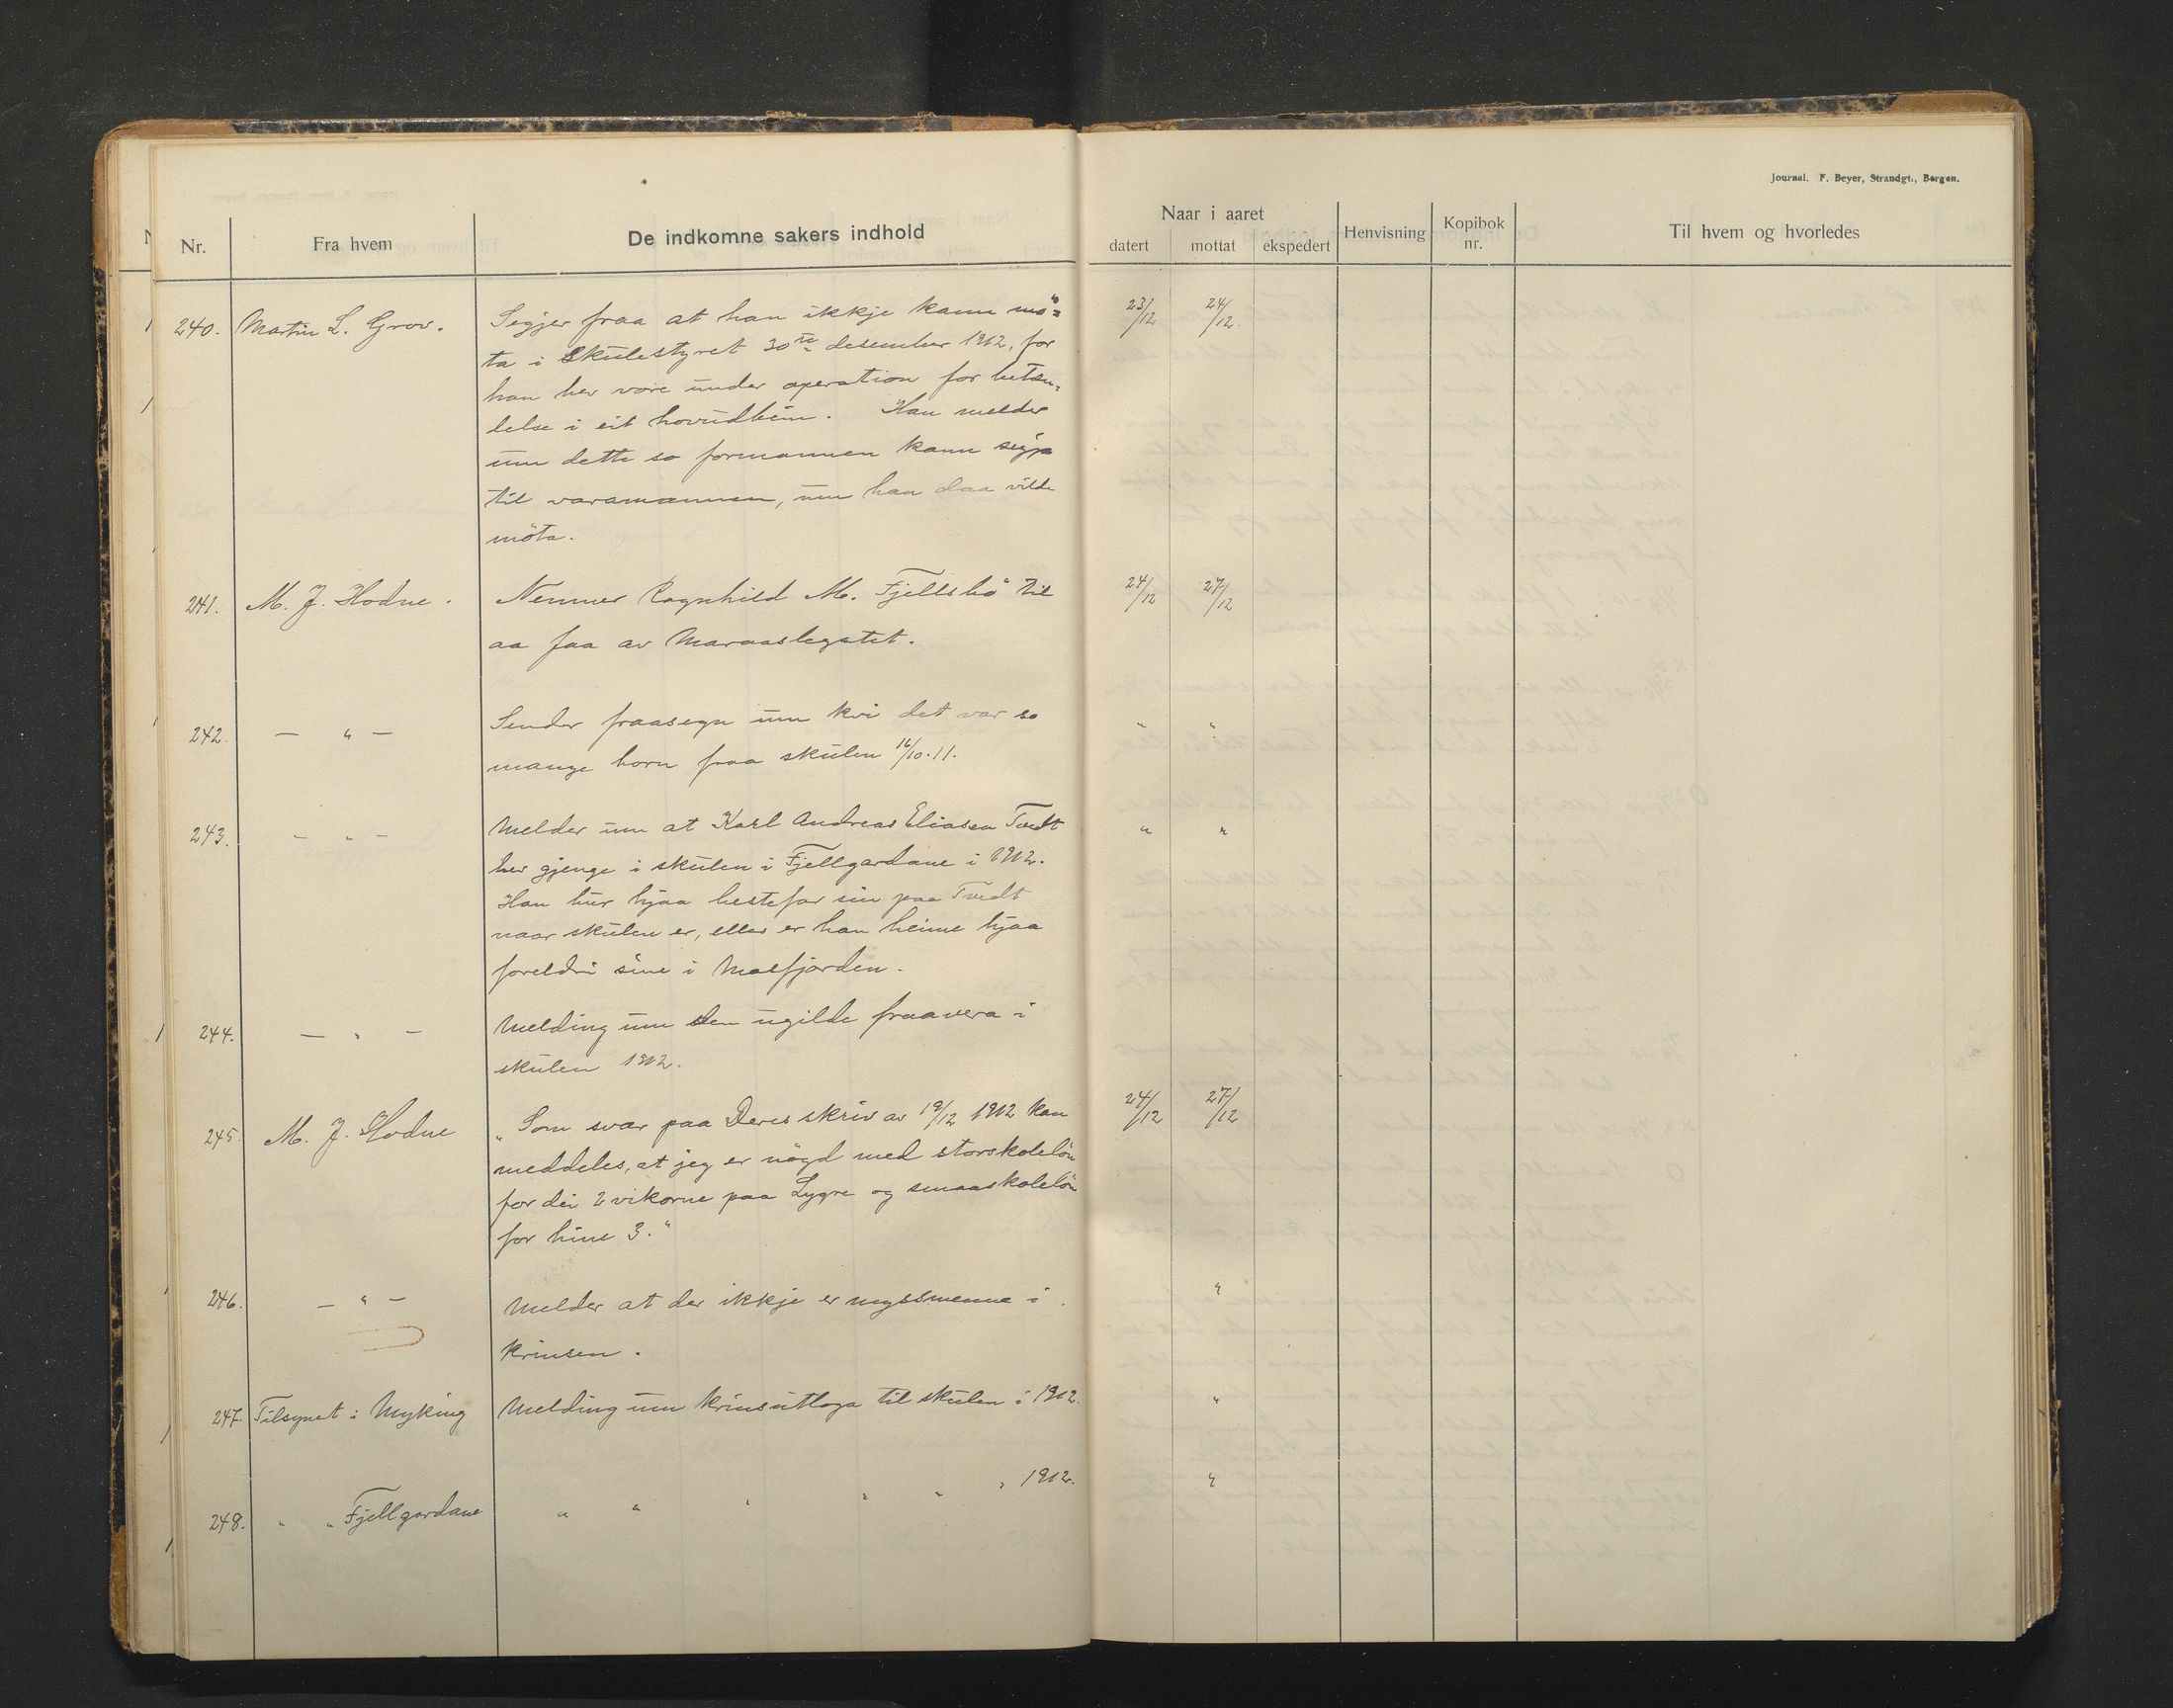 Journal. F. Beyer, Strandgt., Bergen.
Nr. Fra hvem De indkomne sakers indhold Naar i aaret datert mottat ekspedert Henvisning Kopibok nr. Til hvem og hvorledes
240. Martin L. Grov. Segjer fraa at han ikkje kann mö= 23/12 24/12.
ta i Skulestyret 30te desember 1912, for
han hev vore under operation for betæn=
delse i eit hovudbein. Han melder
um dette so formannen kann segja
til varamannen, um han daa vilde
möta.
241. M. J. Hodne. Nemner Ragnhild M. Fjellsbö til 24/12 27/12
aa faa av Maraaslegatet.
242. — " — Sender fraasegn um kvi det var so " "
mange born fraa skulen 16/10.11.
243. — " — Melder um at Karl Andreas Eliasen Tvedt " "
hev gjenge i skulen i Fjellgardane i 1912.
Han bur hjaa bestefar sin paa Tvedt
naar skulen er, elles er han heime hjaa
foreldri sine i Masfjorden.
244. — " — Melding um den ugilde fraavera i
skulen 1912.
245. M. J. Hodne „Som svar paa Deres skriv av 19/12 1912 kan 24/12 27/12
meddeles, at jeg er nögd med storskolelön
for dei 2 vikorne paa Lygre og smaaskolelön
for hine 3."
246. — " — Melder at der ikkje er nyssmenne i "
krinsen.
247. Tilsynet i Myking Melding um krinsutloga til skulen i 1912. "
248. " " Fjellgardane " " " " " " 1912. "